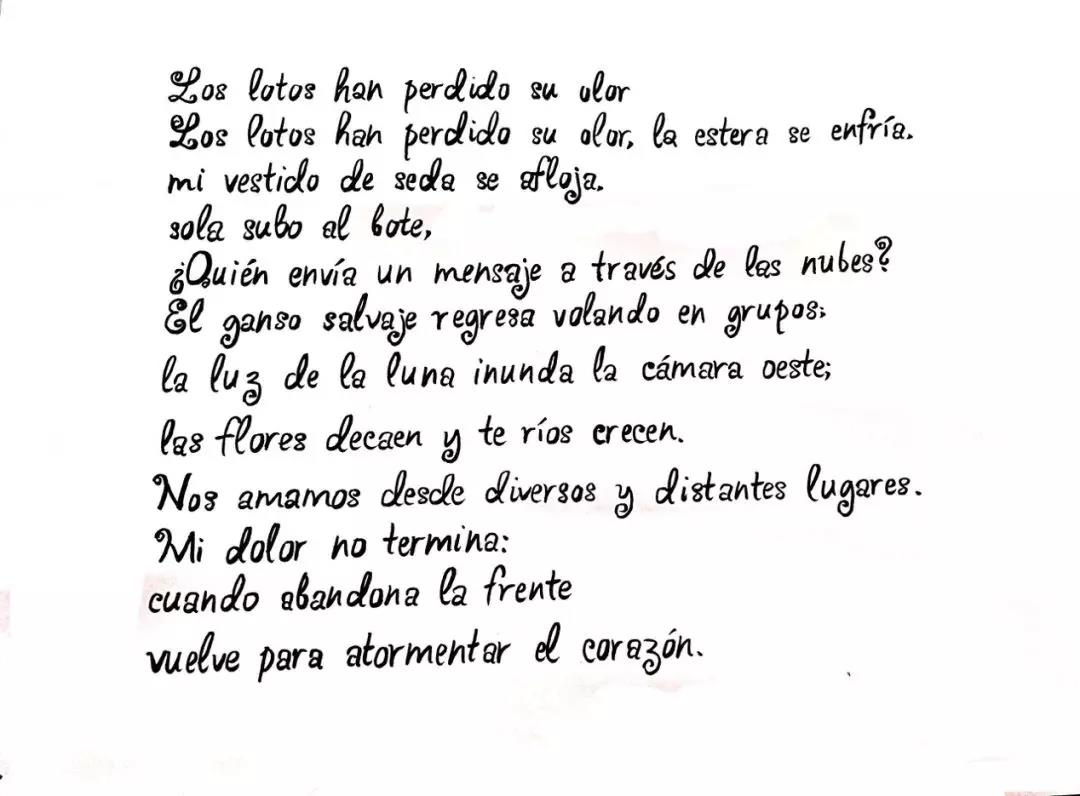 Los lotos han perdido su olor
Los lotos han perdido su olor, la estera se enfría.
mi vestido de seda se afloja.
sola subo al bote,
¿Quién envía un mensaje a través de las nubes?
El ganso salvaje regresa volando en grupos;
la luz de la luna inunda la cámara oeste;
las flores decaen y te ríos crecen.
Nos amamos desde diversos y distantes lugares.
Mi dolor no termina:
cuando abandona la frente
vuelve para atormentar el corazón.